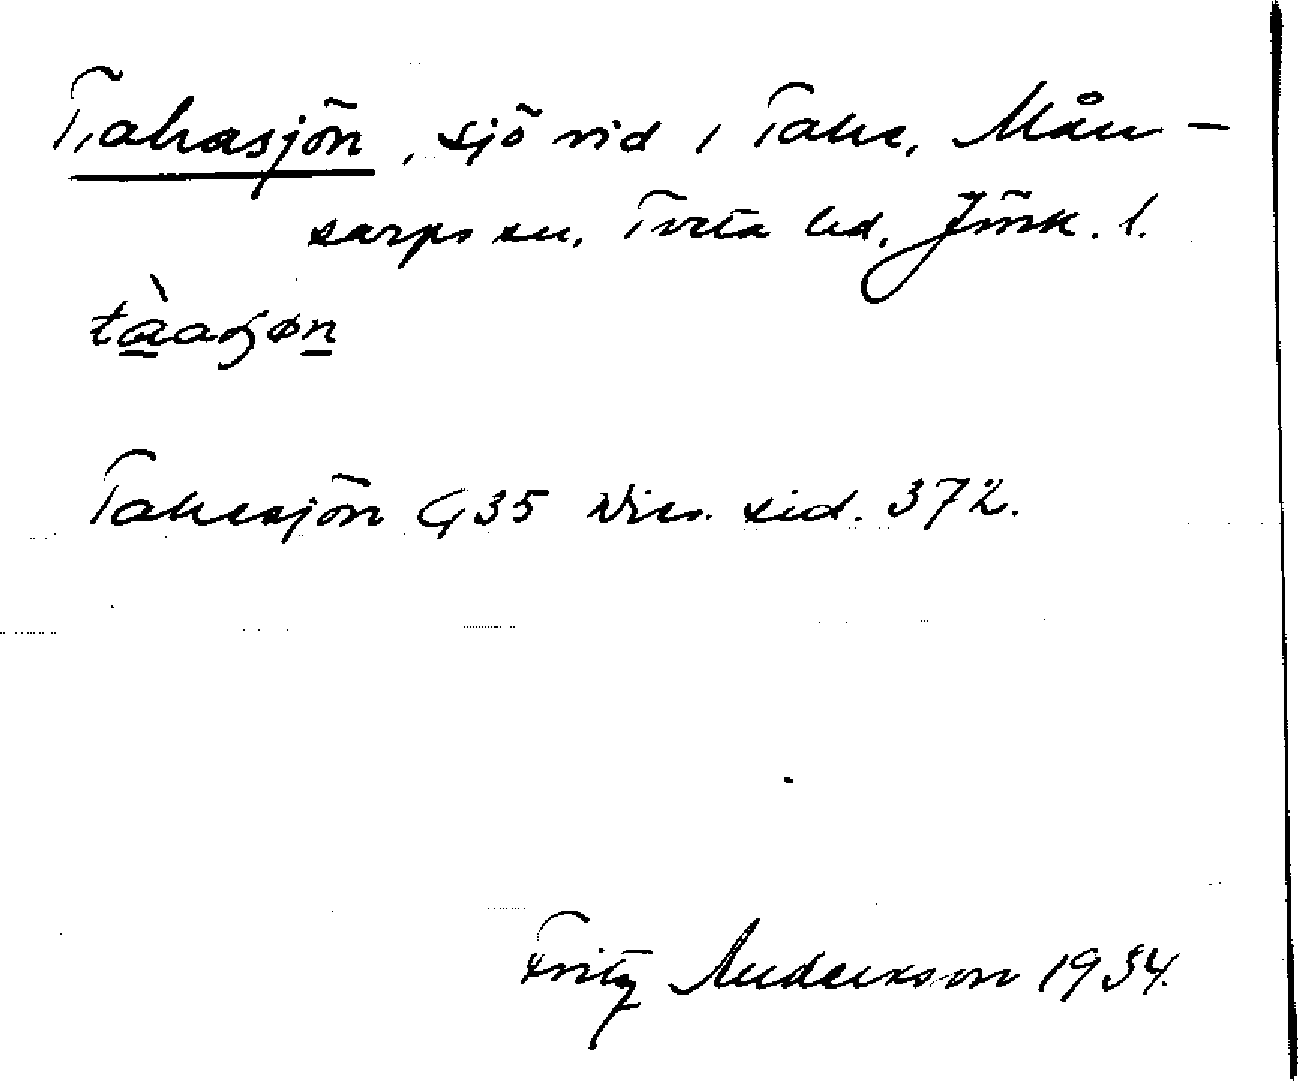 Tahesjön, sjö vid Tahe, Mån-
sarps sn, Tveta hd, Jönk. l.
tàaʃøn
Tahesjön G 35 Vir. sid. 372.
Fritz Anderson 1934.